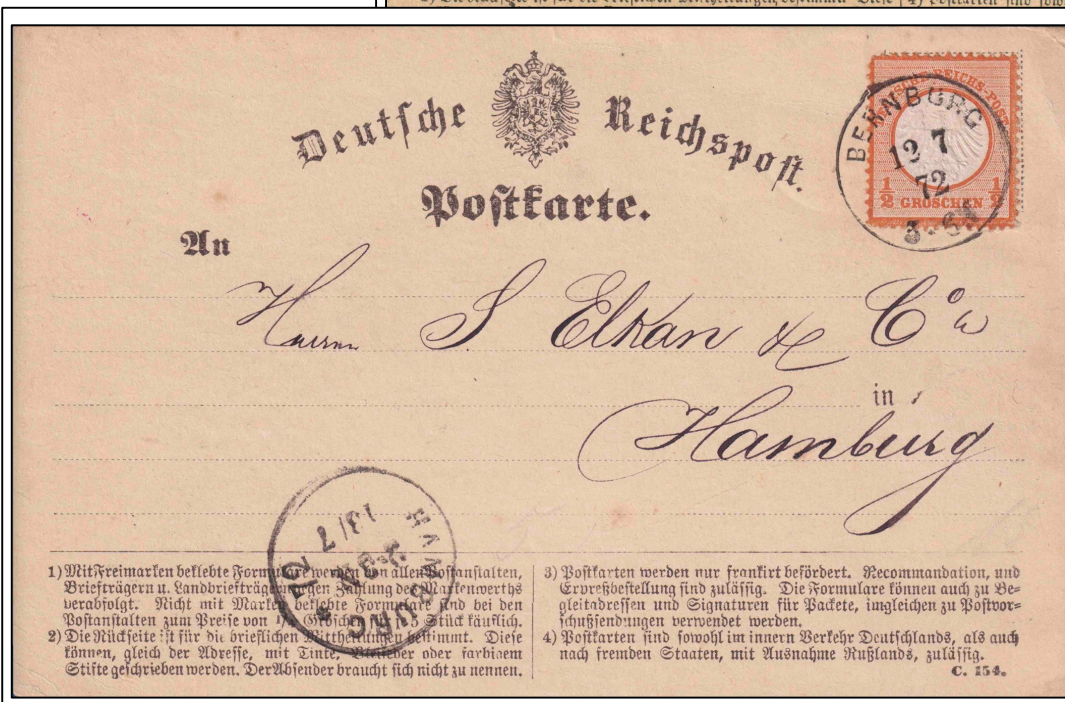 Deutsche Reichspost.
Postkarte.
DEUTSCHE REICHS-POST
1/2 GROSCHEN 1/2
BERNBURG
12 7
72
3-6N
An
Herren S Elkan & Co
in
Hamburg
HAMBURG
13/7
72
1) Mit Freimarken beklebte Formulare werden von allen Postanstalten,
Briefträgern u. Landbriefträgern gegen Zahlung des Markenwerths
verabfolgt. Nicht mit Marken beklebte Formulare sind bei den
Postanstalten zum Preise von Groschen Stück käuflich.
2) Die Rückseite ist für die brieflichen Mittheilungen bestimmt. Diese
können, gleich der Adresse, mit Tinte, Bleifeder oder farbigem
Stifte geschrieben werden. Der Absender braucht sich nicht zu nennen.
3) Postkarten werden nur frankirt befördert. Recommandation, und
Expreßbestellung sind zulässig. Die Formulare können auch zu Be-
gleitadressen und Signaturen für Packete, imgleichen zu Postvor-
schußsendungen verwendet werden.
4) Postkarten sind sowohl im innern Verkehr Deutschlands, als auch
nach fremden Staaten, mit Ausnahme Rußlands, zulässig.
C. 154.